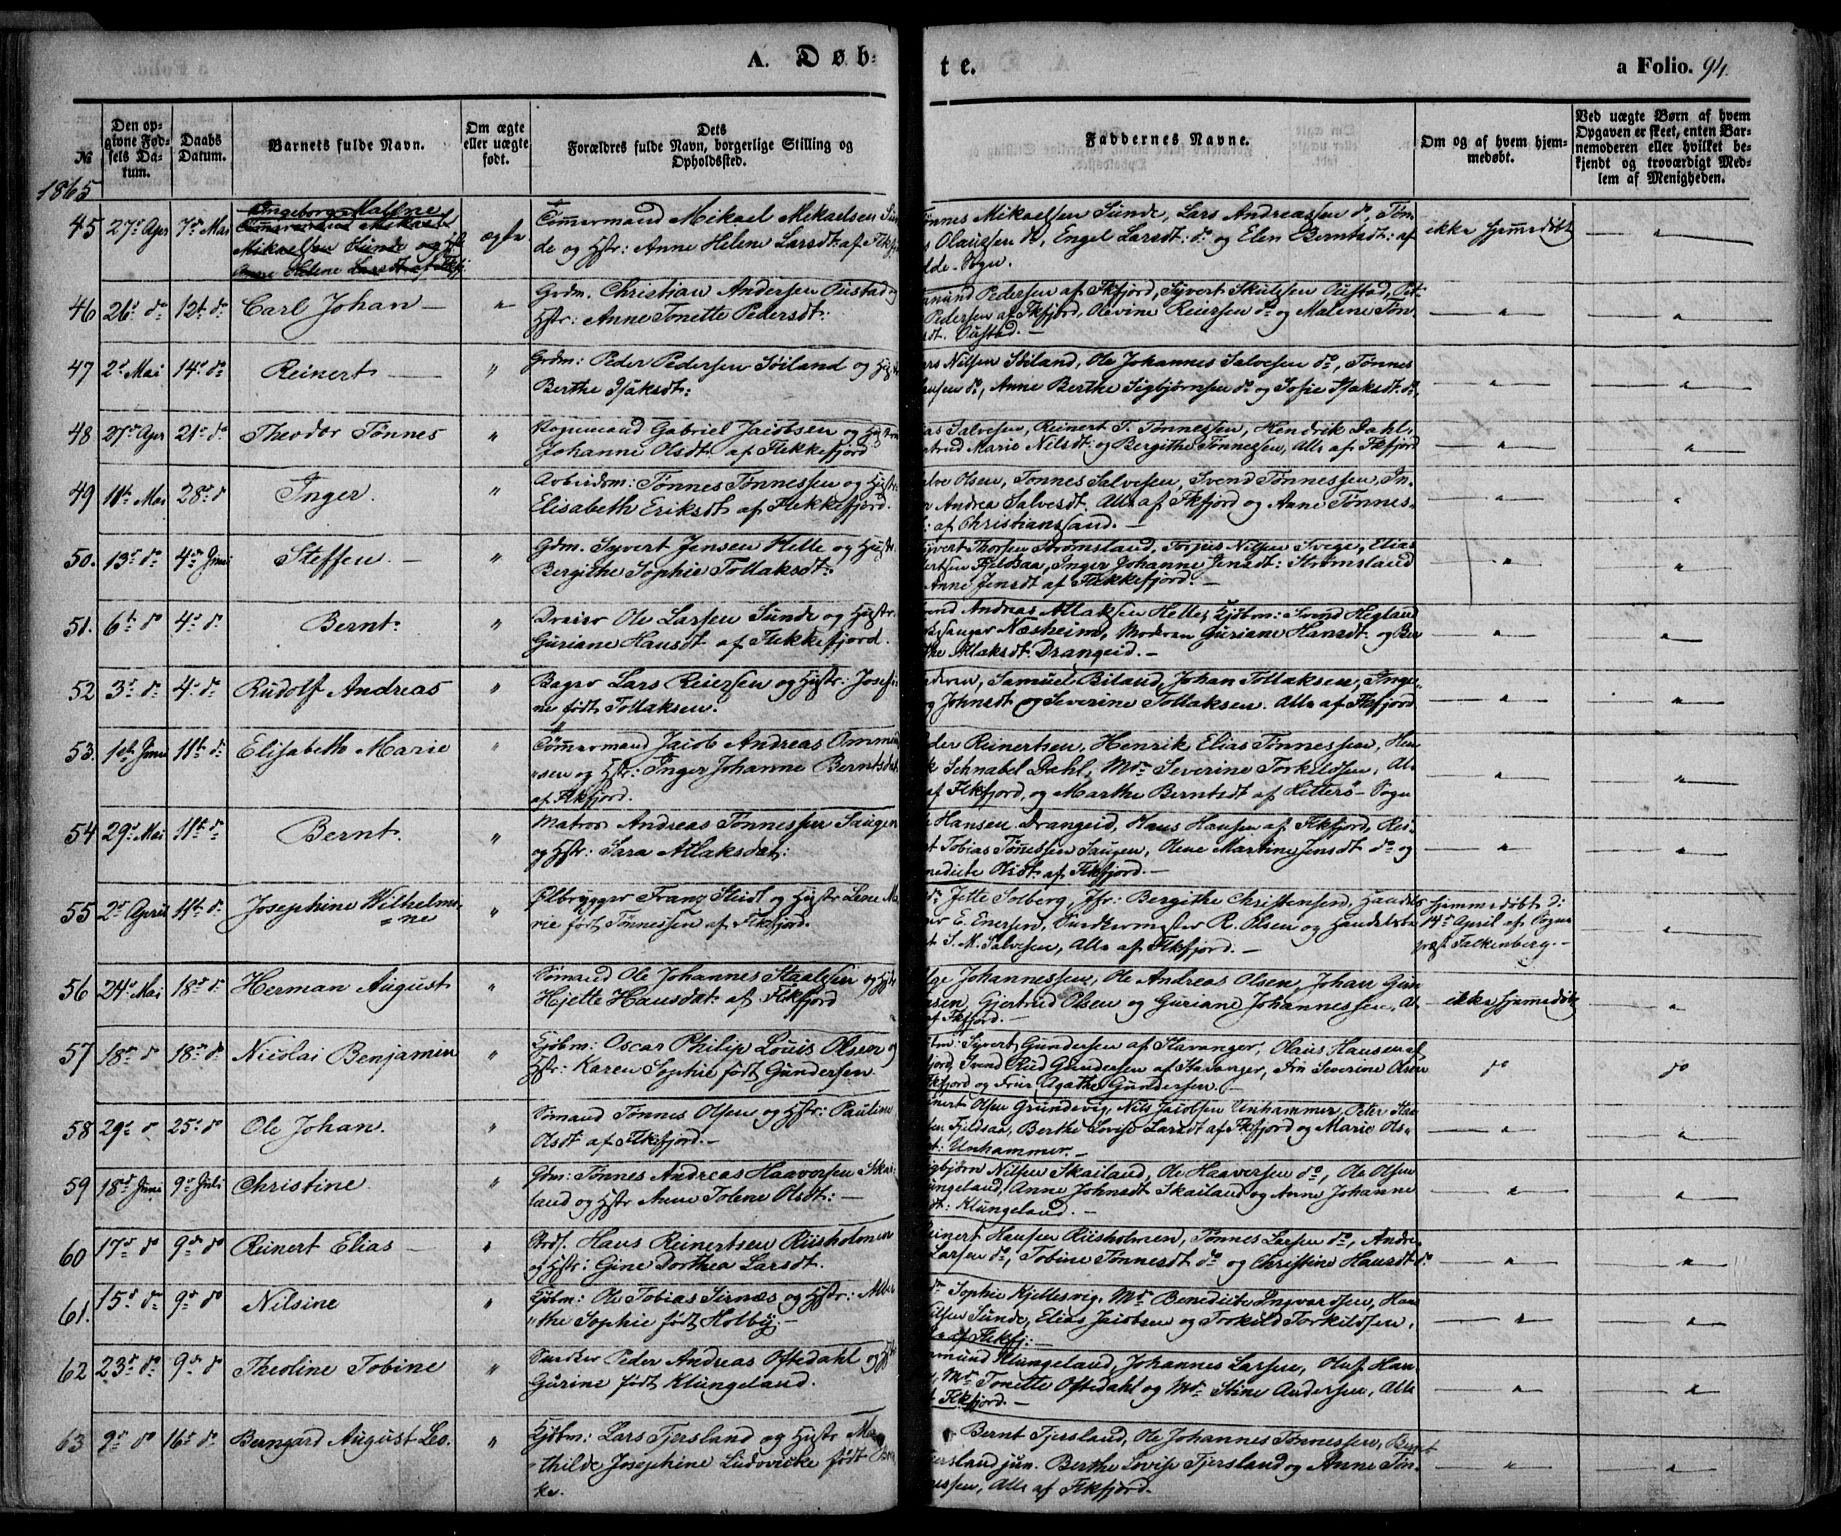 A. Døb-
te.
a Folio. 94.
№
Den opgivne Fødsels Datum.
Daabs Datum.
Barnets fulde Navn.
Om ægte eller uægte født.
Dets Forældres fulde Navn, borgerlige Stilling og Opholdssted.
Faddernes Navne.
Om og af hvem hjemmedøbt.
Ved uægte Børn af hvem Opgaven er skeet, enten Barnemoderen eller hvilket bekjendt og troværdigt Medlem af Menigheden.
1865
45 27de Apr 7de Mai
Tømmermand Mikael
Mikaelsen Sunde og Hstr
Anne Helene Larsdt af Fkfj.
ægte
Tømmermand Mikael Mikaelsen Sun
de og Hstr: Anne Helene Larsdt: af Fkfj
ønnes Mikaelsen Sunde, Lars Andreassen do, Tøn-
s Olaussen do, Engel Larsdt: do og Elen Berntsdt: af
lde-Sogn.
ikke hjemmedøbt "
46 26de do 12te do Carl Johan — "
Grdm. Christian Andersen Oustad og
Hstr: Anne Tonette Pedersdt:
mund Pedersen af Fkfjord, Syvert Skulesen Oustad, Pet-
Pedersen af Fkfjord, Olevine Reiersen do og Malene Tøn-
sdt. Oustad. —
" "
47 2den Mai 14de do Reinert — "
Grdm: Peder Pedersen Søiland og Hstr
Berthe Isaksdt:
ars Nilsen Søiland, Ole Johannes Salvesen do, Tønnes
ensen do, Anne Berthe Sigbjørnsen do og Sofie Isaksdt: do,
" "
48 27de Apr 21de do Theodor Tønnes "
Gabriel Jacobsen og Hustru
Johanne Olsdt. af Flekkefjord
as Salvesen, Reinert T. Tønnessen, Hendrik Dahl,
rtrud Marie Nilsdt: og Bergithe Tønnessen, Alle af Fkfjord
" "
49 11te Mai 28de do Inger. "
Arbeidsm: Tønnes Tønnessen og Hustr
Elisabeth Eriksdt af Flekkefjord.
alve Olsen, Tønnes Salvesen, Svend Tønnessen, In-
r Andrea Salvesdt. Alle af Fkfjord og Anne Tønnes-
t: af Christianssand. —
" "
50. 13de do 4de Juni Steffen. — "
Gdm. Syvert Jensen Helle og Hustr
Bergithe Sophie Tollaksdt:
yvert Thorsen Strømsland, Torjus Nilsen Svege, Elias
ertsen Fjeldsaa, Inger Johanne Jensdt: Strømsland
Anne Jensdt af Flekkefjord. —
" "
51. 6te do 4de do Bernt. "
Ole Larsen Sunde og Hustr.
Guriane Hansdt af Flekkefjord.
vend Andreas Atlaksen Helle, Kjøbm: Svend Hegland
Kirkesanger Næsheim, Moderen Guriane Hansdt. og Ber-
the Atlaksdt. Drangeid. —
" "
52 3de do 4de do Rudolf Andreas "
Bager Lars Reiersen og Hustr: Josefi-
ne født Tollaksen.
aderen, Samuel Biland, Johan Tollaksen, Inge-
rg Johnsdt og Severine Tollaksen. Alle af Fkfjord
" "
53. 1ste Juni 11te do Elisabeth Marie "
Tømmermand Jacob Andreas Ommun
"sen og Hstr: Inger Johanne Berntsdat.
af Fkfjord.
eder Reinertsen, Henrik Elias Tønnessen, Hen-
k Schnabel Dahl, Mdm Severine Torkildsen, Al-
af Fkfjord, og Marthe Berntsdt af Hitterø-Sogn
" "
54 29de Mai 11te do Bernt. "
Matros Andreas Tønnessen Saugen
og Hstr: Sara Atlaksdat:
Hansen Drangeid, Hans Hansen af Fkfjord, Rei-
t Tobias Tønessen Saugen, Olene Martine Jensdt do og
nedicte Olsdt af Fkfjord. —
" "
55 2den April 11te do Josephine Wilhelmi-
"ne "
Ølbrygger Franz Steidl og Hustr Lene Ma
rie født Tønnessen af Fkfjord.
Mdm Jette Solberg, Jfr: Bergithe Christensen, Handels
E. Enersen, R. Olsen og Handelsbe-
t S. M. Salvesen, Alle af Fkfjord. —
Hjemmedøbt d:
14de April af Sogne
præst Falkenberg. — "
56 24de Mai 18de do Herman August "
Sømand Ole Johannes Staalesen og Hstr
Hjette Hansdat. af Fkfjord
lge Johannessen, Ole Andreas Olsen, Johan Gun-
ersen, Gjertrud Olsen og Guriane Johannessen, Al-
af Fkfjord. —
ikke hjemmedøbt "
57 18de do 18de do Nicolai Benjamin "
Kjøbm: Oscar Philip Louis Olsen og
Hstr: Karen Sophie født Gundersen
øbm: Syvert Gundersen af Stavanger, Olaus Hansen af
fjord, Svend Gundersen af Stavanger, Fru Severine Olsen
Fkfjord og Frue Agathe Gundersen. —
do do
58 29de do 25de do Ole Johan. "
Sømand Tønnes Olsen og Hstr: Pauline
Olsdt af Fkfjord. —
inert Olsen Grundevig, Nils Jacobsen Unhammer, Peter Ste-
en Fjeldsaa, Berthe Lovise Larsdt af Fkfjord og Marie Ols-
t: Unhammer. —
" "
59 18de Juni 9de Juli Christine "
Gdm: Tønnes Andreas Haavorsen Skai-
land og Hstr Anne Tolene Olsdt: —
igbjørn Nilsen Skailand, Ole Haaversen do, Ole Olsen
ungeland, Anne Johnsdt Skailand og Anne Johanne
dt: Klungeland. —
" "
60 17de do 9de do Reinert Elias — "
Hans Reinertsen Riisholmen
og Hstr: Gine Dorthea Larsdt.
einert Hansen Riisholmen, Tønnes Larsen do, Andre-
Larsen do, Tobine Tønnesdt do og Christine Hansdt do
" "
61. 15de do 9de do Nilsine "
Kjøbm: Ole Tobias Sirnæs og Hstr: Alber
"the Sophie født Holby. —
Mdm Sophie Kjellesvig, Mdm Benedicte Ingvardsen, Han
Nilsen Sunde, Elias Jacobsen og Torkild Torkildsen,
Alle af Fkfj:
" "
62 23de do 9de do Theoline Tobine "
Snedker Peder Andreas Oftedahl og Hstr
Gurine født Klungeland.
mund Klungeland, Johannes Larsen, Oluf Han-
, Mdm Tonette Oftedahl og Mdm Stine Andersen, Alle
f Fkfjord. —
" "
63 9de do 16de do Berngard August Leo. "
Kjøbm: Lars Tjersland og Hustr Ma-
"thilde Josephine Ludovicke født Bee
ke.
Bernt Tjersland, Ole Johannes Tønnessen, Bernt
jersland jun. Berthe Lovise Tjersland og Anne Tøn-
nessen, Alle af Fkfjord.
" "